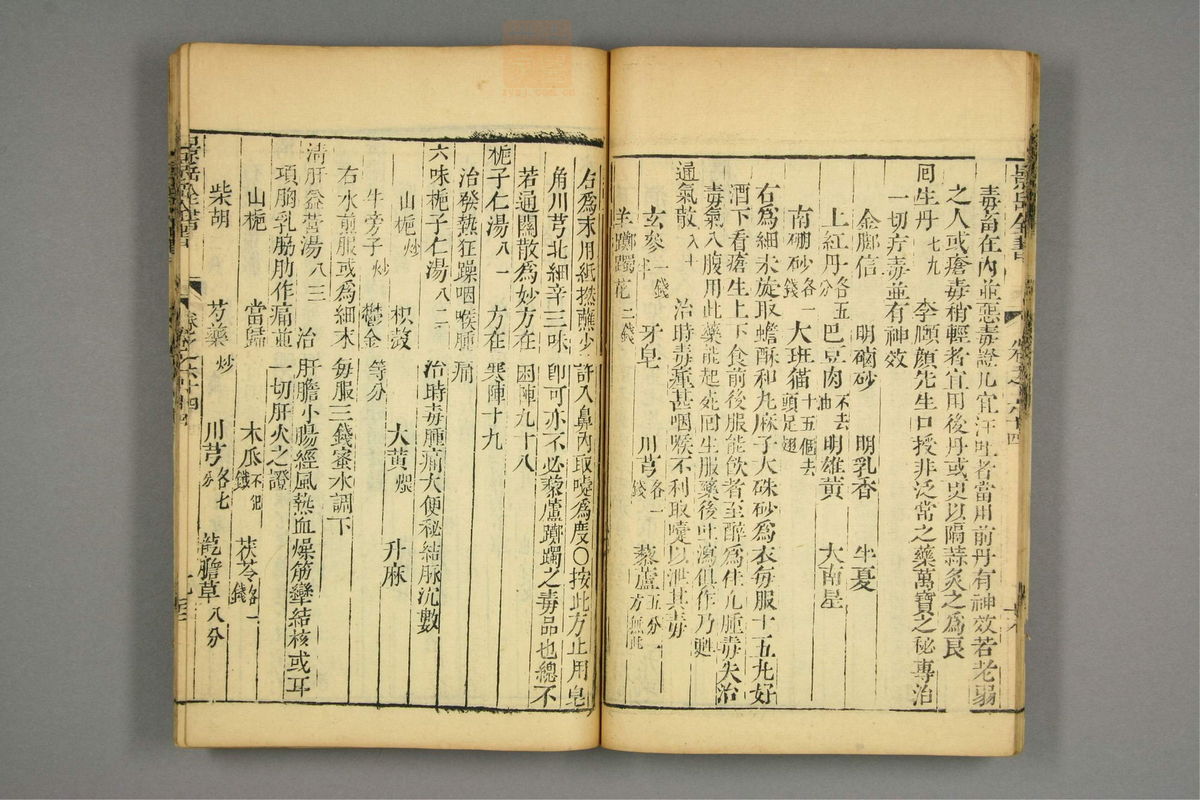 毒畜在內並惡毒證凡宜汗吐者當用前丹有神效若老弱
之人或瘡毒稍輕者宜用後丹或更以隔蒜灸之為良
回生丹 七九 李傾顏先生口授非泛常之藥萬寶之秘專治
一切疔毒並有神效
金腳信 明硇砂 明乳香 半夏
上紅丹 各五分 巴豆肉 不去油 明雄黃 大南星
南硼砂 各一錢 大班猫 十五個去頭足翅
右為細末旋取蟾酥和丸麻子大硃砂為衣每服十五丸好
酒下看瘡生上下食前後服能飲者至醉為佳凡腫毒失治
毒氣入腹用此藥能起死回生服藥後吐瀉俱作乃甦
通氣散 八十 治時毒瘇甚咽喉不利取嚏以泄其毒
玄參 一錢半 牙皂 川芎 各一錢 藜蘆 五分一方無此
羊躑躅花 二錢
右為末用紙撚蘸少許入鼻內取嚏為度○按此方止用皂
角川芎北細辛三味即可亦不必藜蘆躑躅之毒品也總不
若通關散為妙方在因陣九十八
梔子仁湯 八一 方在寒陣十九
治發熱狂躁咽喉腫痛
六味梔子仁湯 八二 治時毒腫痛大便秘結脈沉數
山梔 炒 枳殼 大黃 煨 升麻
牛旁子 炒 鬱金 等分
右水煎服或為細末每服三錢蜜水調下
清肝益營湯 八三 治肝膽小腸經風熱血燥筋攣結核或耳
項胸乳脇肋作痛並一切肝火之證
山梔 當歸 木瓜 不犯鐵 茯苓 各一錢
柴胡 芍藥 炒 川芎 各七分 龍膽草 八分